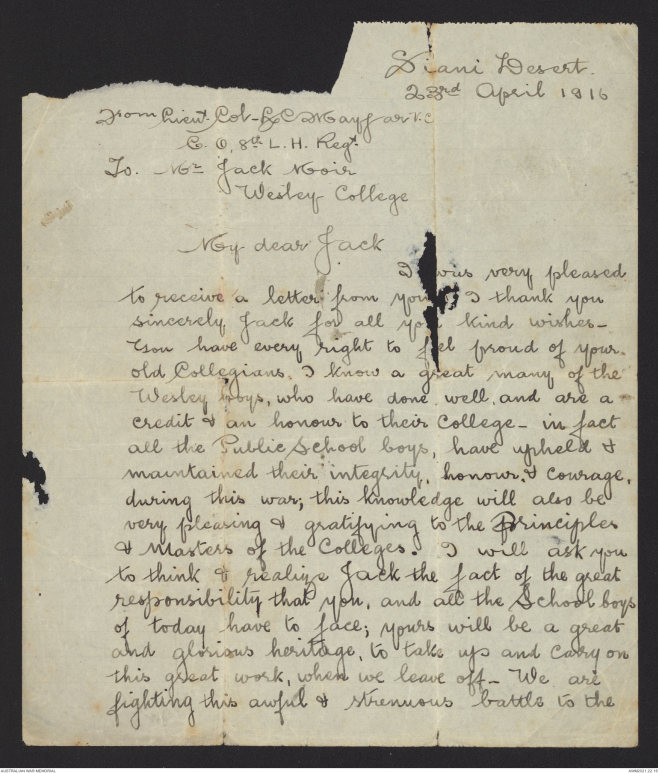 Siani Desert.
23rd April 1916
From Lieut. Col. L C Maygar V.C
C. O. 8th L. H. Regt
To. Mr Jack Moir
Wesley College
My dear Jack
I was very pleased
to receive a letter from you, I thank you
sincerely Jack for all your kind wishes-
You have every right to feel proud of your
old Collegians. I know a great many of the
Wesley boys, who have done well, and are a
credit & an honour to their College - in fact
all the Public School boys, have upheld &
maintained their integrity, honour, & courage,
during this war; this knowledge will also be
very pleasing & gratifying to the Principles
& Masters of the Colleges. I will ask you
to think & realize Jack the fact of the great
responsibility that you, and all the School boys
of today have to face; yours will be a great
and glorious heritage, to take up and carry on
this great work, when we leave off - We are
fighting this awful & strenuous battle to the
AUSTRALIAN WAR MEMORIAL